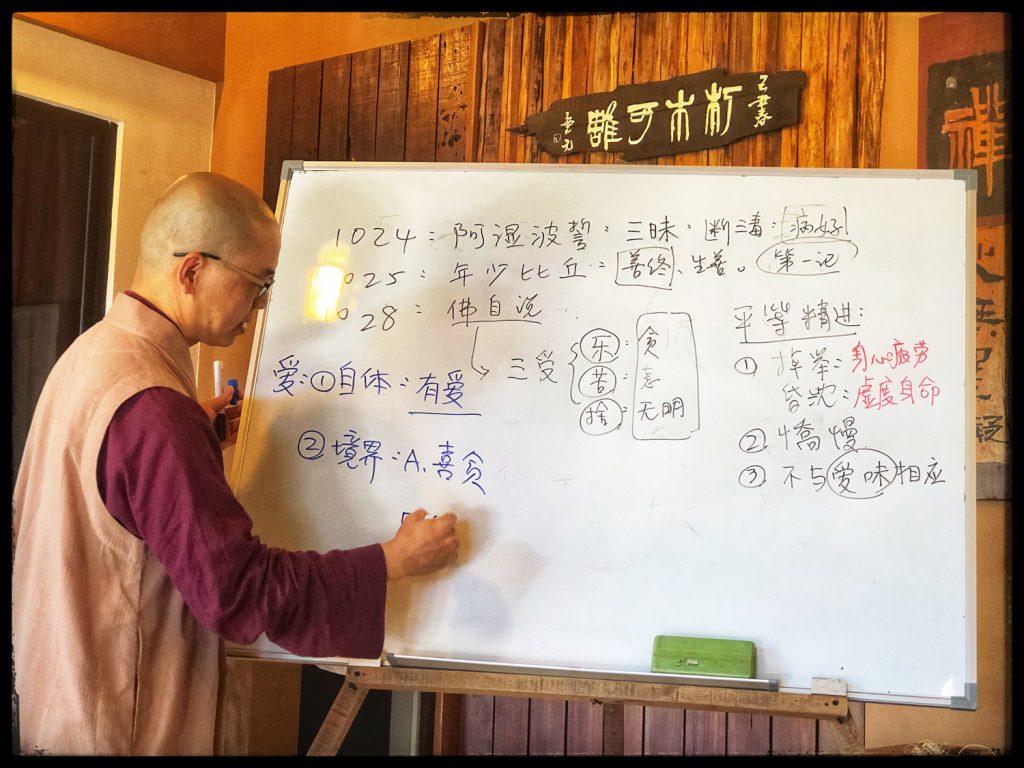 朽木可雕
禪
1024：阿湿波誓：三昧：断漏：病好!
1025：年少比丘：善终、生善。第一记
1028：佛自说
三受
乐：贪
苦：恚
捨：无明
爱：①自体：有爱
②境界：A、喜贪
平等精进：
① 掉举：身心疲劳
昏沈：虚度身命
② 憍慢
③ 不与爱味相应